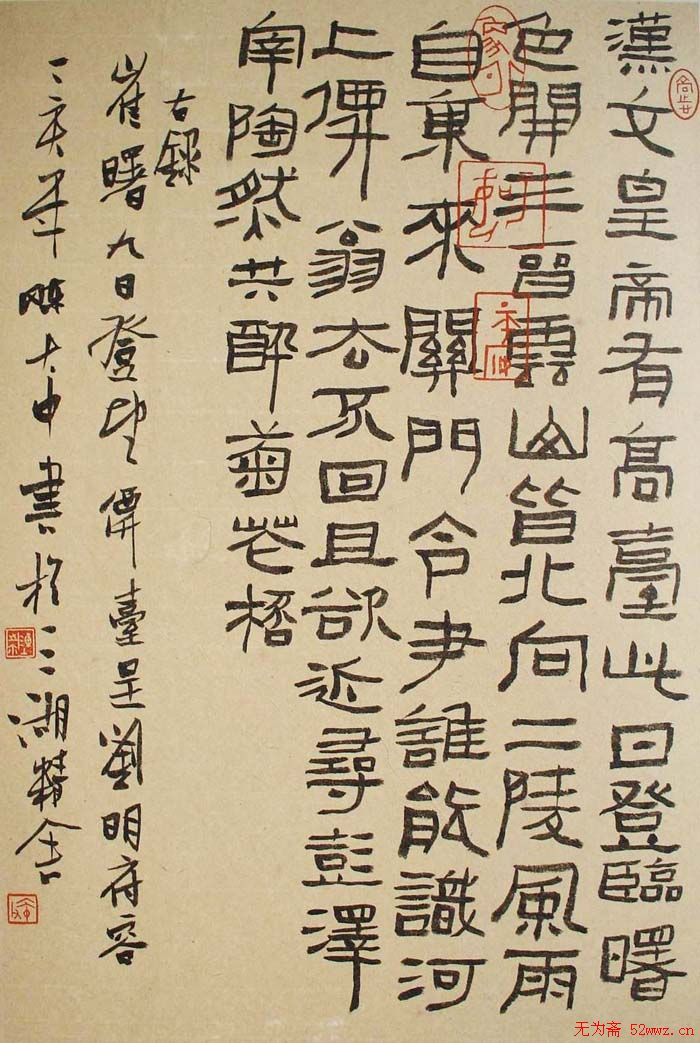 漢文皇帝有高臺此日登臨曙
色開三晉雲山皆北向二陵風雨
自東來關門令尹誰能識河
上僊翁去不回且欲近尋彭澤
宰陶然共醉菊芲桮
右錄
崔曙九日登望僊臺呈劉明府容
丁亥年大中書於三湖精舍
无为斋 52wwz.cn